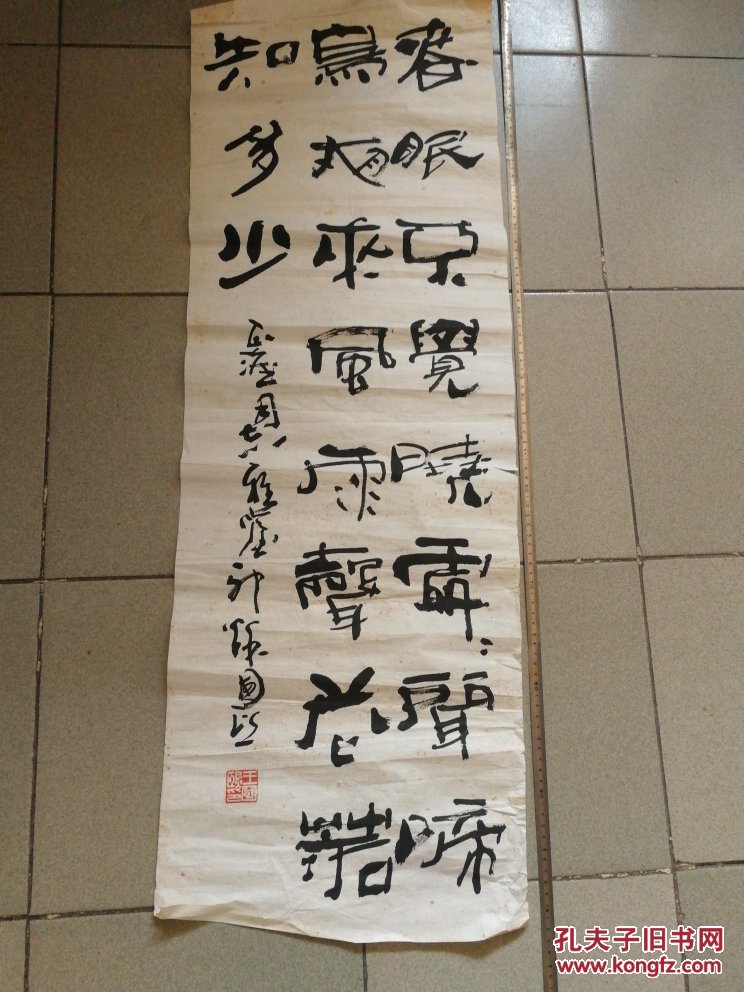 春眠不覺曉處〻聞啼
鳥夜來風雨聲花落
知多少
雅鑒
孔夫子旧书网
www.kongfz.com